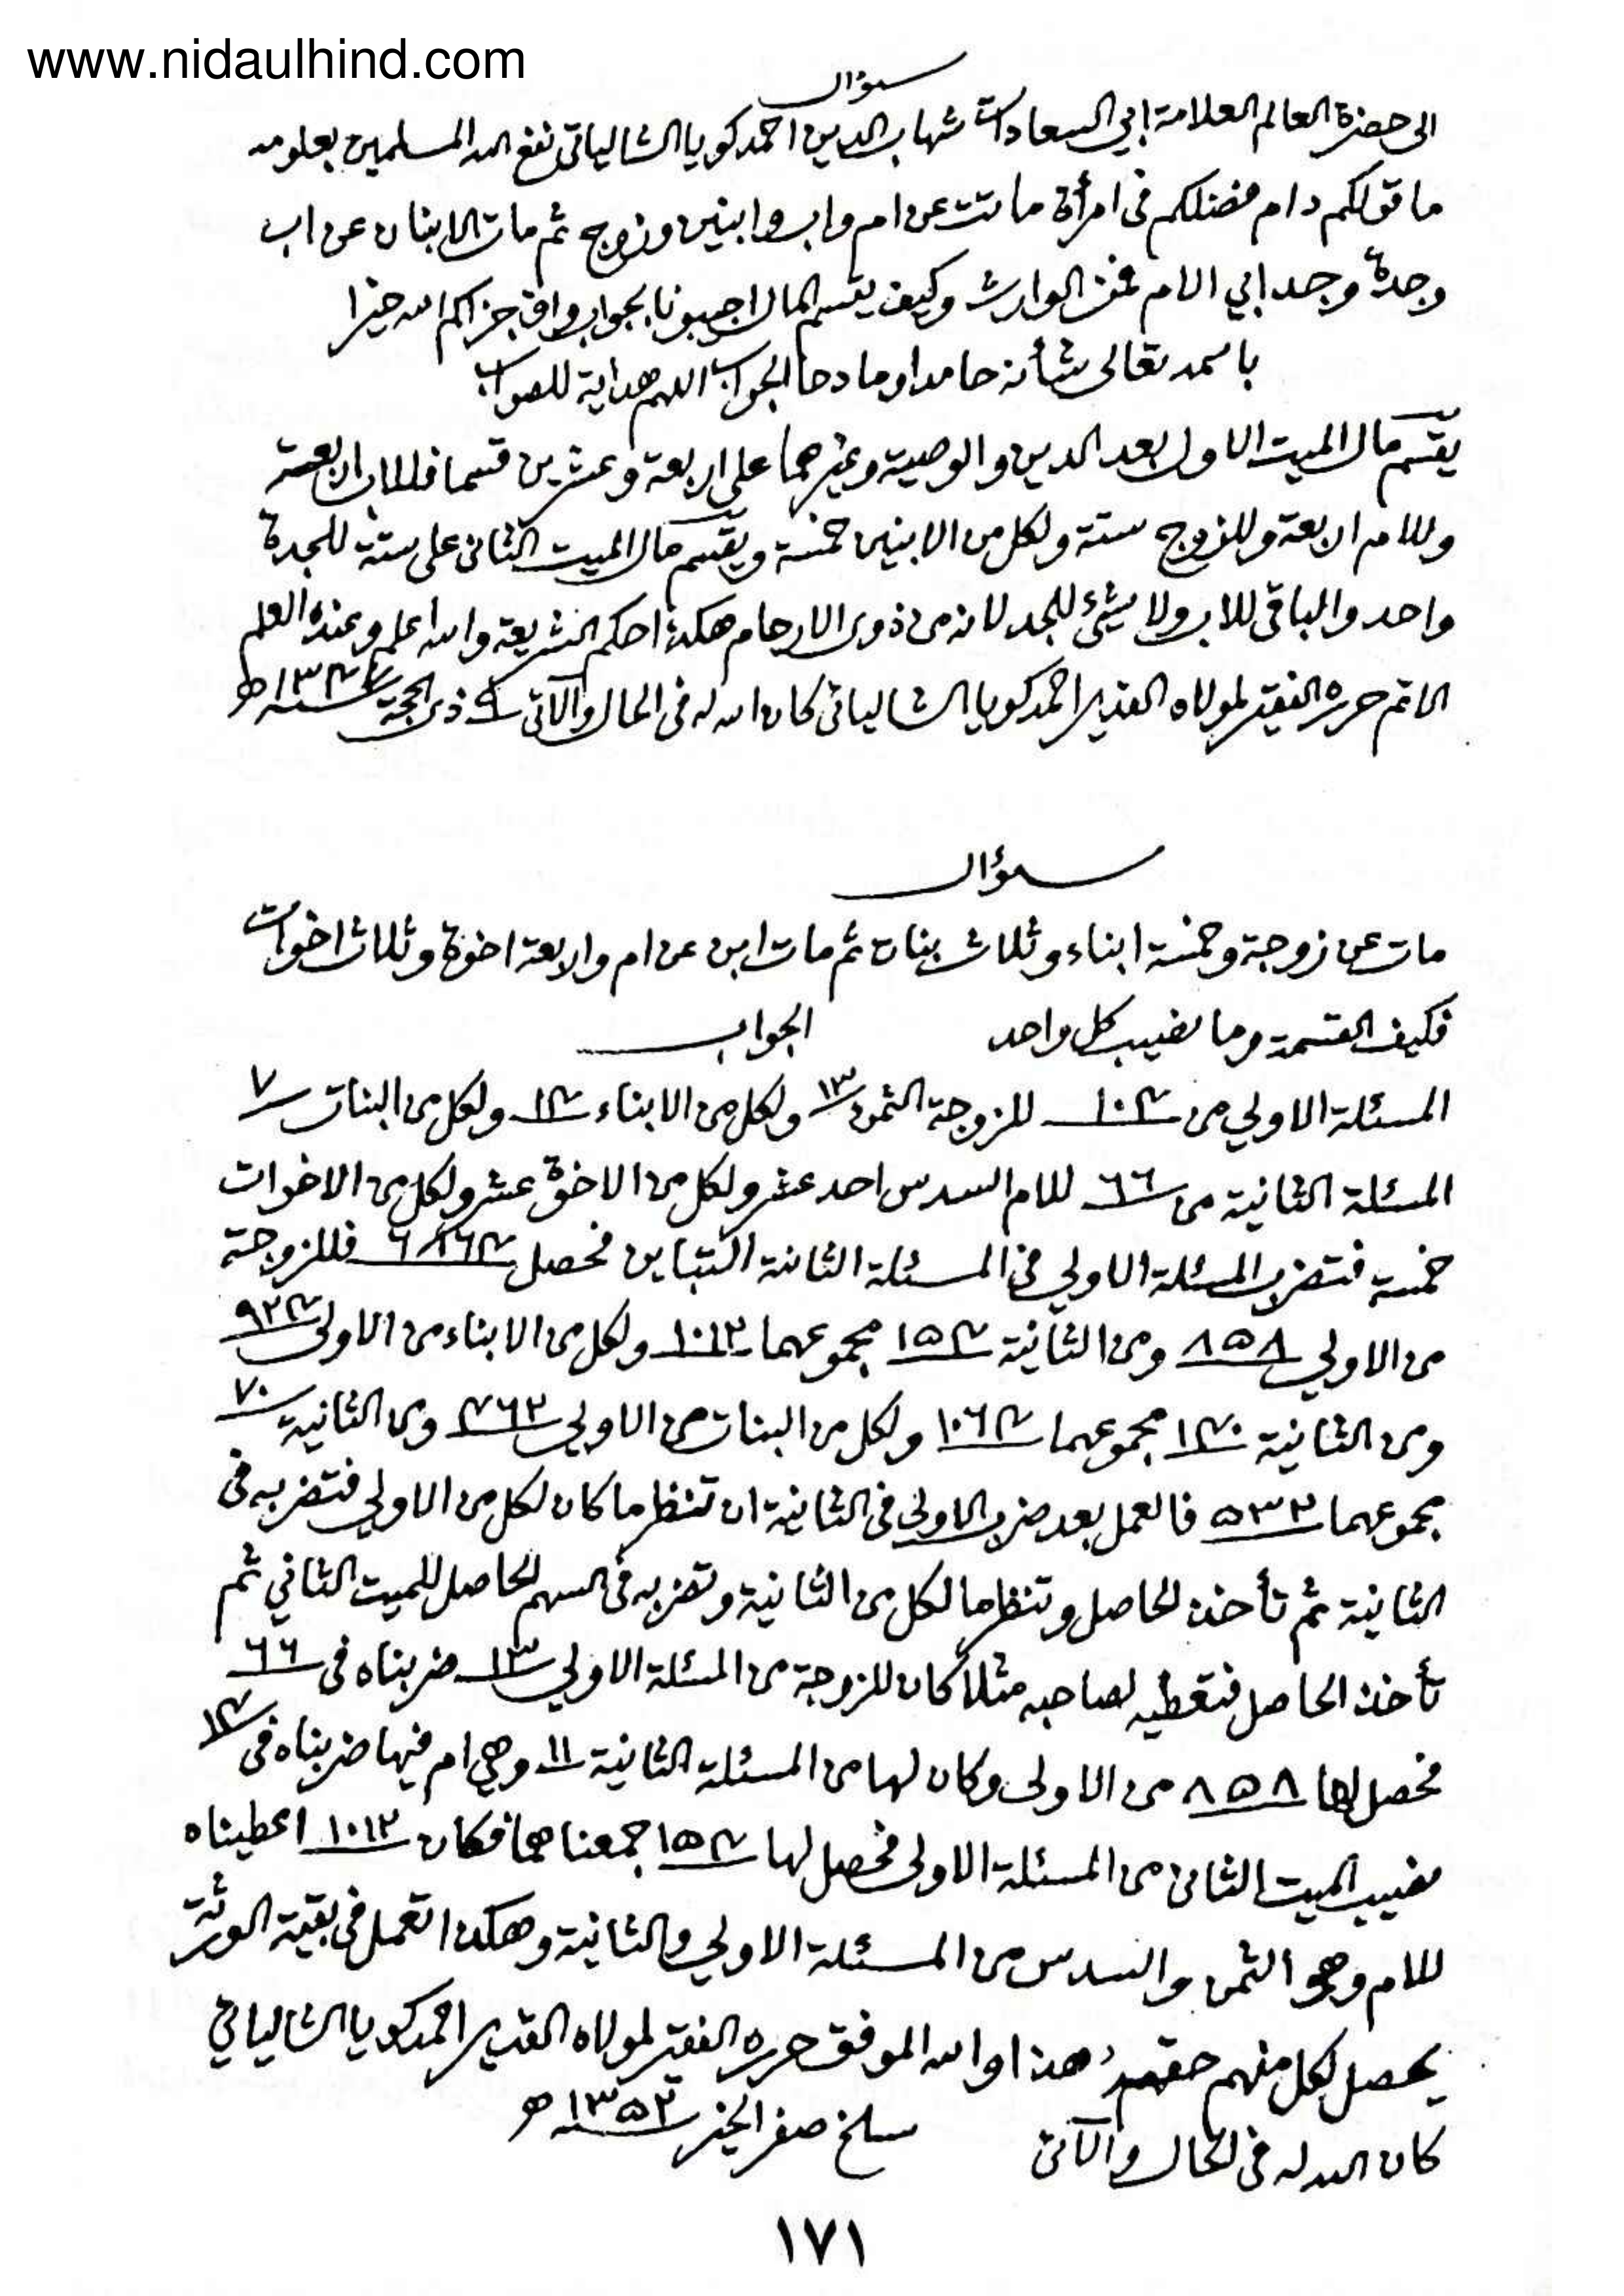 www.nidaulhind.com
سؤال
الى حضرة العالم العلامة ابي السعادات شهاب الدين احمد كويا الشالياتي نفع الله المسلمين بعلومه
ما قولكم دام فضلكم في امرأة ماتت عن ام واب وابنين وزوج ثم مات الابنان عن اب
وجدة وجد ابي الام فمن الوارث وكيف يقسم المال اجيبونا بجواب واف جزاكم الله خيرا
باسمه تعالى شأنه حامدا ومادحا الجواب اللهم هداية للصواب
يقسم مال الميت الاول بعد الدين والوصية وغيرهما على اربعة وعشرين قسما فللاب اربعة
وللام اربعة وللزوج ستة ولكل من الابنين خمسة ويقسم مال الميت الثاني على ستة للجدة
واحد والباقي للاب ولا شئ للجد لانه من ذوى الارحام هكذا حكم الشريعة والله اعلم وعنده العلم
الاتم حرره الفقير لمولاه القدير احمد كويا الشالياتي كان الله له في الحال والآتي ٩ ذى الحجة سنة ه
سؤال
مات عن زوجة وخمسة ابناء وثلاث بنات ثم مات ابن عن ام واربعة اخوة وثلاث اخوات
فكيف القسمة وما نصيب كل واحد الجواب
المسئلة الاولي من ١٠٤ للزوجة الثمن ١٣ ولكل من الابناء ١٤ ولكل من البنات ٧
المسئلة الثانية من ٦٦ للام السدس احد عشر ولكل من الاخوة عشر ولكل من الاخوات
خمسة فتضرب المسئلة الاولي في المسئلة الثانية للتباين فحصل ٦٨٦٤ فللزوجة
من الاولي ٨٥٨ ومن الثانية ١٥٤ مجموعهما ١٠١٢ ولكل من الابناء من الاولى ٩٢٤
ومن الثانية ١٤٠ مجموعهما ١٠٦٤ ولكل من البنات من الاولي ٤٦٢ ومن الثانية ٧٠
مجموعهما ٥٣٢ فالعمل بعد ضرب الاولى في الثانية ان تنظر ما كان لكل من الاولي فتضربه في
الثانية ثم تأخذ الحاصل وتنظر ما لكل من الثانية وتضربه في السهم الحاصل للميت الثاني ثم
تأخذ الحاصل فتعطيه لصاحبه مثلا كان للزوجة من المسئلة الاولي ١٣ ضربناه في ٦٦
فحصل لها ٨٥٨ من الاولى وكان لها من المسئلة الثانية ١١ وهي ام فيها ضربناه في ١٤
نصيب الميت الثاني من المسئلة الاولى فحصل لها ١٥٤ جمعناهما فكان ١٠١٢ اعطيناه
للام وهو الثمن والسدس من المسئلة الاولي والثانية وهكذا تعمل في بقية الورثة
يحصل لكل منهم حقهم هذا والله الموفق حرره الفقير لمولاه القدير احمد كويا الشالياتي
كان الله له في الحال والآتي سلخ صفر الخير سنة ١٣٥٢ ه
١٧١